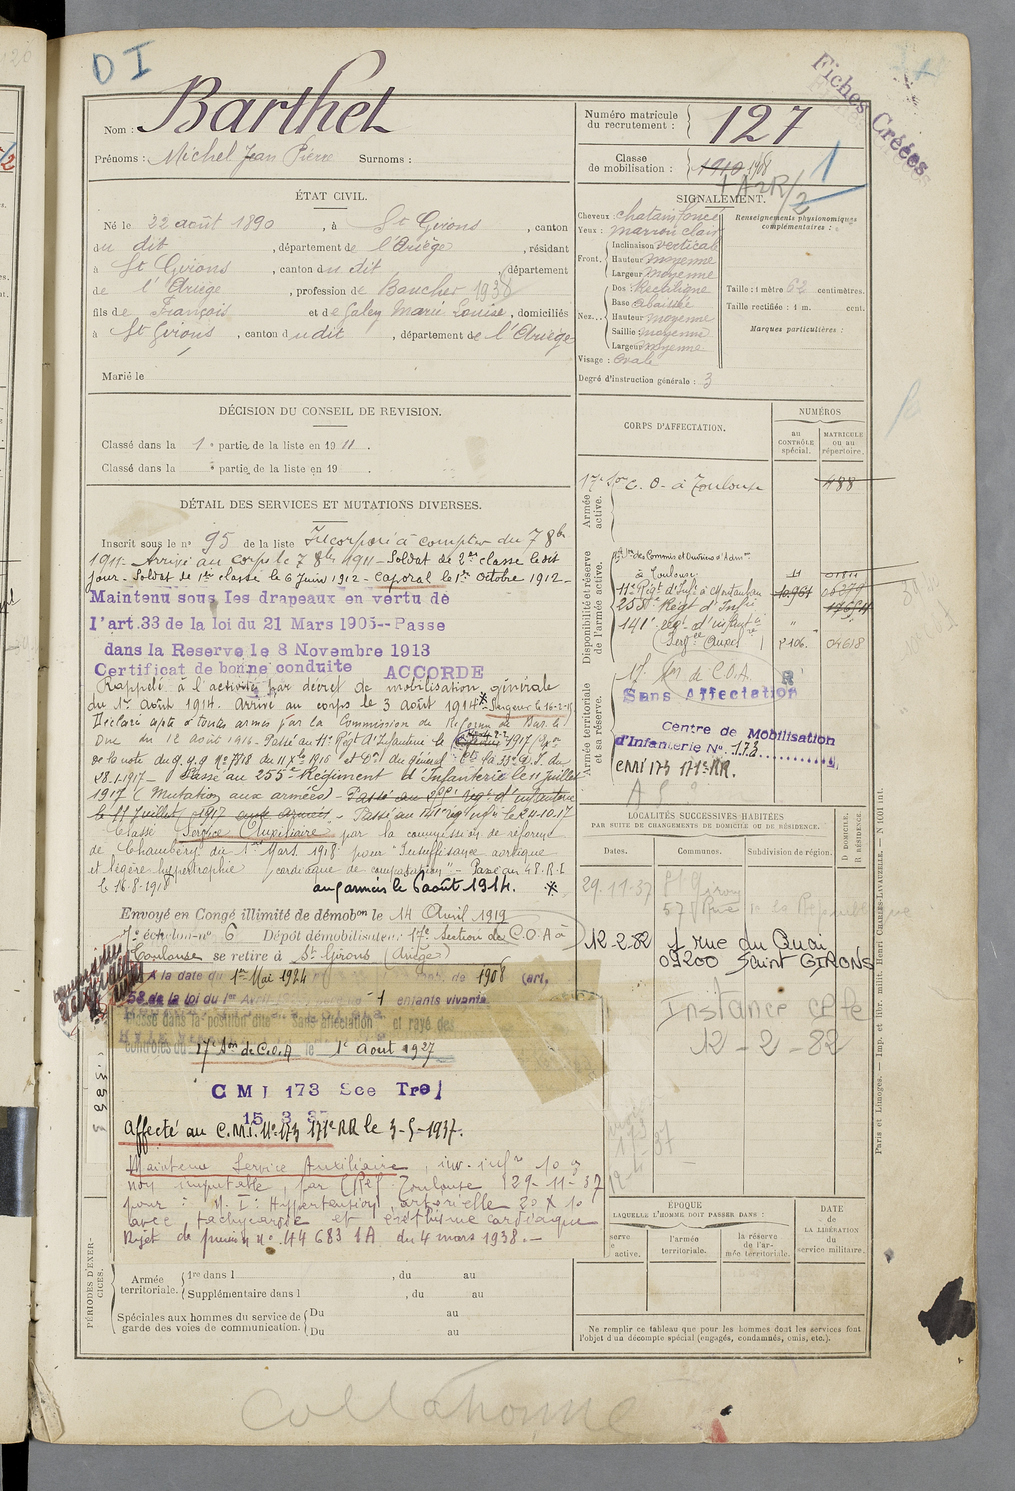 D I
Fiches Créées
Nom : Barthet
Prénoms : Michel Jean Pierre Surnoms :
Numéro matricule du recrutement : 127
Classe de mobilisation : 1910 1908
1
ÉTAT CIVIL.
Né le 22 août 1890, à St Girons, canton
du dit, département de l'Ariège, résidant
à St Girons, canton du dit, département
de l'Ariège, profession de Boucher 1938
fils de François et de Galey Marie Louise, domiciliés
à St Girons, canton du dit, département de l'Ariège
Marié le
SIGNALEMENT.
Cheveux : chatain foncé
Yeux : marron clair
Front. Inclinaison verticale
Hauteur moyenne
Largeur moyenne
Nez. Dos Rectiligne
Base abaissée
Hauteur moyenne
Saillie moyenne
Largeur moyenne
Visage : Ovale
Renseignements physionomiques complémentaires :
Taille : 1 mètre 62 centimètres.
Taille rectifiée : 1 m. cent.
Marques particulières :
Degré d'instruction générale : 3
DÉCISION DU CONSEIL DE REVISION.
Classé dans la 1e partie de la liste en 1911.
Classé dans la e partie de la liste en 19 .
DÉTAIL DES SERVICES ET MUTATIONS DIVERSES.
Inscrit sous le n° 95 de la liste Incorporé à compter du 7 8bre
1911. Arrivé au corps le 7 8bre 1911 - Soldat de 2e classe le dit
jour - Soldat de 1re classe le 6 Juin 1912 - Caporal le 1er Octobre 1912 -
Maintenu sous les drapeaux en vertu de
l'art.33 de la loi du 21 Mars 1905--Passe
dans la Reserve le 8 Novembre 1913
Certificat de bonne conduite ACCORDE
Rappelé à l'activité par décret de mobilisation générale
du 1er Août 1914. Arrivé au corps le 3 août 1914 * Sergent le 16-2-15
Déclaré apte à toutes armes par la Commission de Réforme de Bar le
Duc du 12 août 1916 - Passé au 11e Régt d'Infanterie le 1917
28.1.1917 - Passé au 255e Régiment d'Infanterie le 11 juillet
1917 (Mutation aux armées) - Passé au régt d'infanterie
le 11 Juillet 1917 aux armées - Passé au 141e rég. infie le 24-10-17
Classé Service Auxiliaire par la commission de réforme
de Chambéry du 1er Mars 1918 pour "Insuffisance aortique
et légère hypertrophie cardiaque de compensation" - Passé au
le 16.8.1918 aux armées le 6 août 1914. *
Envoyé en Congé illimité de démobon le 14 Avril 1919
7e échelon n° 6 Dépôt démobilisateur 17e Section de C.O.A à
Toulouse se retire à St Girons (Ariège)
A la date du 1er Mai 1924 de 1908 (art.
58 de la loi du 1er Avril 1 enfants vivants.
Classé dans la position dite "Sans affectation" et rayé des
contrôles du 17e Son de C.O.A le 1er Août 1927
C M I 173 Sce Trel
15 3 37
Affecté au C.M.I. N° 173 171e RR le 3-5-1937.
Maintenu Service Auxiliaire, inv. infre 10 %
non imputable, par CRéf. Toulouse 29-11-37
pour : N. I : Hypertension artérielle 20 X 10
avec tachycardie et éréthisme cardiaque
Rejet de pension n° 44683 1A du 4 mars 1938. -
CORPS D'AFFECTATION.
NUMÉROS
au CONTRÔLE spécial.
MATRICULE ou au répertoire.
Armée active.
17e Son C. O. à Toulouse 488
Disponibilité et réserve de l'armée active.
Son des Commis et Ouvriers d'Admon
à Toulouse
11e Régt d'Infie à Montauban 10.961
255e Régt d'Infie
141e rég. d'infanterie "
(Servce Auxre) 2106. 04618
Armée territoriale et sa réserve.
17e Son de C.O.A.
Sans Affectation
Centre de Mobilisation
d'Infanterie N° 173
CMI 173 171e RR.
LOCALITÉS SUCCESSIVES HABITÉES
PAR SUITE DE CHANGEMENTS DE DOMICILE OU DE RÉSIDENCE.
Dates. Communes. Subdivision de région. D. DOMICILE. R. RÉSIDENCE.
29.11-37 St Girons
57 Rue de la République
12-2-82 1 rue du Quai
09200 Saint GIRONS
Instance cette
12-2-82
ÉPOQUE
LAQUELLE L'HOMME DOIT PASSER DANS :
serve
active.
l'armée territoriale.
la réserve de l'armée territoriale.
DATE de LA LIBÉRATION du service militaire.
PÉRIODES D'EXERCICES.
Armée territoriale. 1re dans l , du au
Supplémentaire dans l , du au
Spéciales aux hommes du service de garde des voies de communication. Du au
Du au
Ne remplir ce tableau que pour les hommes dont les services font
l'objet d'un décompte spécial (engagés, condamnés, omis, etc.).
Paris et Limoges. — Imp. et libr. milit. Henri CHARLES-LAVAUZELLE. — N 1001 int.